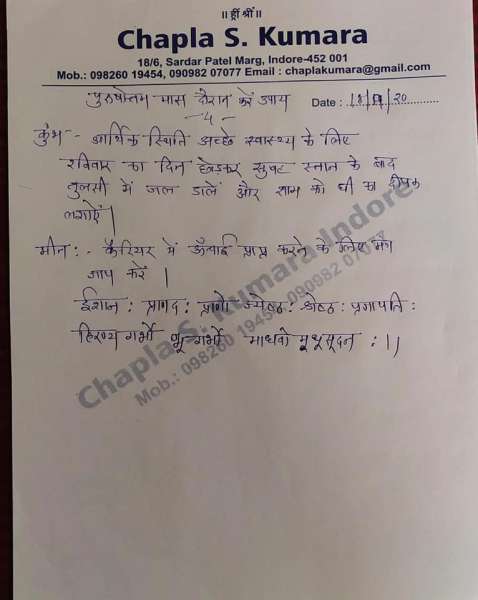 ॥ ह्रीं श्रीं ॥
Chapla S. Kumara
18/6, Sardar Patel Marg, Indore-452 001
Mob.: 098260 19454, 090982 07077 Email : chaplakumara@gmail.com
पुरुषोत्तम मास दौरान करें उपाय
Date : 18/9/20
-4-
कुंभ :- आर्थिक स्थिति अच्छे स्वास्थ्य के लिए
रविवार का दिन छोड़कर सुबह स्नान के बाद
तुलसी में जल डालें और शाम को घी का दीपक
लगाऐं |
मीन :- कैरियर में ऊँचाई प्राप्त करने के लिए मंत्र
जाप करें |
ईशान : प्राणद : प्राणो ज्येष्ठ : श्रेष्ठ : प्रजापति :
हिरण्य गर्भो भू गर्भो माधवो मधुसूदन : ||
Chapla S. Kumara Indore
Mob.: 098260 19454, 090982 07077